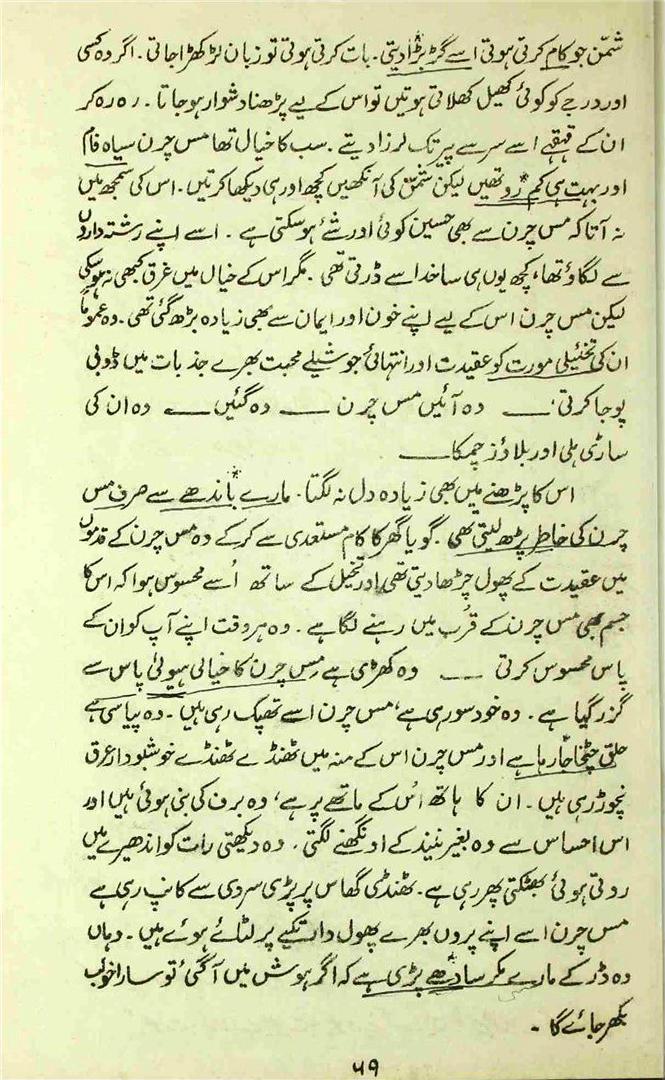 شمّن جو کام کرتی ہوتی اسے گڑبڑا دیتی۔ بات کرتی ہوتی تو زبان لڑکھڑا جاتی۔ اگر وہ کسی
اور درجے کو کوئی کھیل کھلاتی ہوتیں تو اس کے لیے پڑھنا دشوار ہو جاتا۔ رہ رہ کر
ان کے قہقہے اسے سر سے پیر تک لرزا دیتے۔ سب کا خیال تھا مس چرن سیاہ فام
اور بہت ہی کم رو تھیں لیکن شمّن کی آنکھیں کچھ اور ہی دیکھا کرتیں۔ اس کی سمجھ میں
نہ آتا کہ مس چرن سے بھی حسین کوئی اور شے ہو سکتی ہے۔ اسے اپنے رشتہ داروں
سے لگاؤ تھا، کچھ یوں ہی سا خدا سے ڈرتی تھی۔ مگر اس کے خیال میں غرق کبھی نہ ہو سکی
لیکن مس چرن اس کے لیے اپنے خون اور ایمان سے بھی زیادہ بڑھ گئی تھی۔ وہ عموماً
ان کی تخئیلی مورت کو عقیدت اور انتہائی جوشیلے محبت بھرے جذبات میں ڈوبی
پوجا کرتی ۔ــــ وہ آئیں مس چرن ــــ وہ گئیں ــــ وہ ان کی
ساڑی ہلی اور بلاؤز چمکا ــــ
اس کا پڑھنے میں بھی زیادہ دل نہ لگتا۔ مارے باندھے سے صرف مس
چرن کی خاطر پڑھ لیتی تھی۔ گویا گھر کا کام مستعدی سے کر کے وہ مس چرن کے قدموں
میں عقیدت کے پھول چڑھا دیتی تھی اور تخیل کے ساتھ اُسے محسوس ہوا کہ اس کا
جسم بھی مس چرن کے قُرب میں رہنے لگا ہے۔ وہ ہر وقت اپنے آپ کو ان کے
پاس محسوس کرتی ــــ وہ کھڑی ہے مس چرن کا خیالی ہیولیٰ پاس سے
گزر گیا ہے۔ وہ خود سو رہی ہے، مس چرن اسے تھپک رہی ہیں۔ وہ پیاسی ہے
حلق چٹخا جا رہا ہے اور مس چرن اس کے منہ میں ٹھنڈے ٹھنڈے خوشبودار عرق
نچوڑ رہی ہیں۔ ان کا ہاتھ اُس کے ماتھے پر ہے، وہ برف کی بنی ہوئی ہیں اور
اس احساس سے وہ بغیر نیند کے اونگھنے لگتی۔ وہ دیکھتی رات کو اندھیرے میں
روتی ہوئی بھٹکتی پھر رہی ہے۔ ٹھنڈی گھاس پر پڑی سردی سے کانپ رہی ہے
مس چرن اسے اپنے پروں بھرے پھول دار تکیے پر لٹائے ہوئے ہیں۔ وہاں
وہ ڈر کے مارے مکر سادھے پڑی ہے کہ اگر ہوش میں آ گئی تو سارا خواب
بکھر جائے گا۔
۵۹